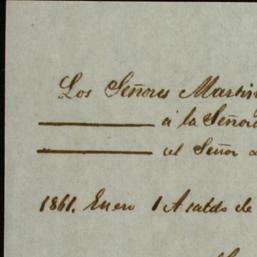 Los Señores Martin
á la Señora
al Señor
1861. Enero 1 A saldo de